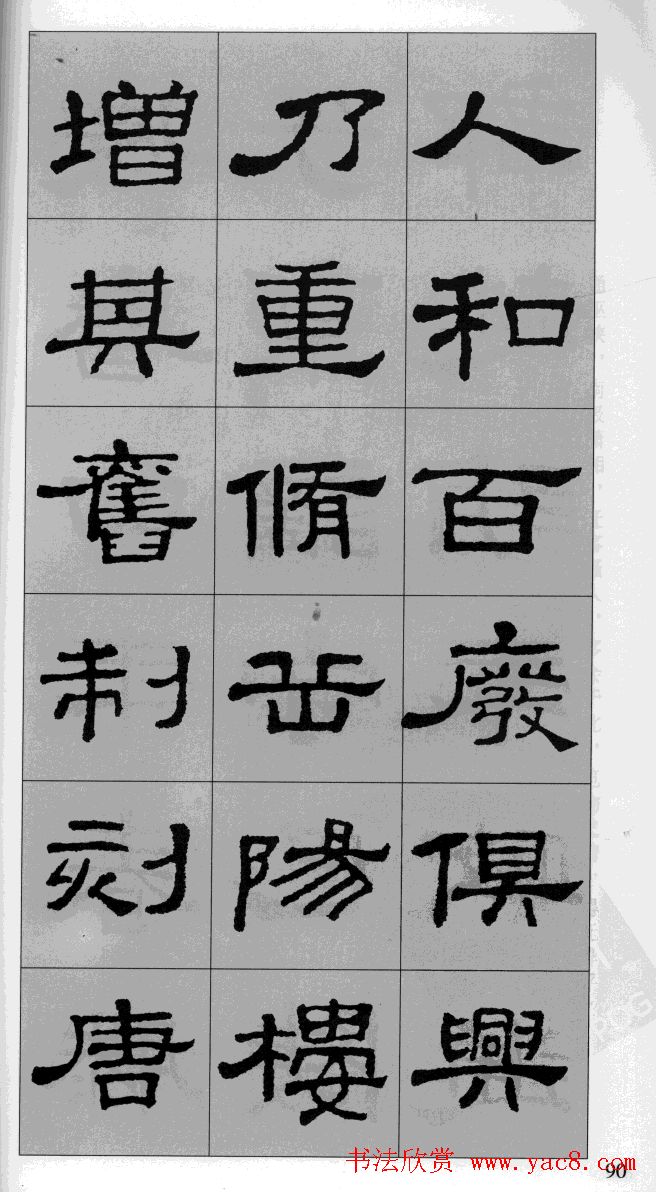 人和百廢俱興
乃重脩岳陽樓
增其舊制刻唐
书法欣赏 www.yac8.com
90